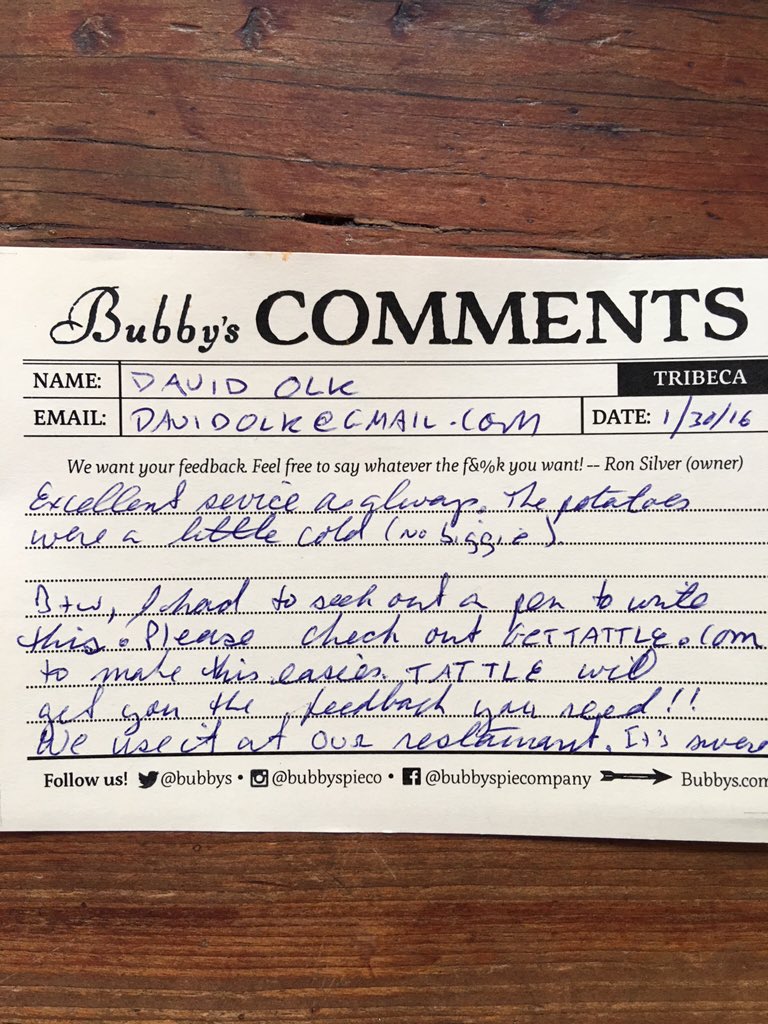 Bubby's COMMENTS
NAME: DAVID OLK TRIBECA
EMAIL: DAVIDOLK@GMAIL.COM DATE: 1/30/16
We want your feedback. Feel free to say whatever the f&%k you want! -- Ron Silver (owner)
Excellent sevice as always. The potatoes
were a little cold (no biggie).
Btw, I had to seek out a pen to write
this. Please check out GETTATTLE.COM
to make this easier. TATTLE will
get you the feedback you need!!
We use it at our restaurant. It's
Follow us! @bubbys • @bubbyspieco • @bubbyspiecompany Bubbys.com